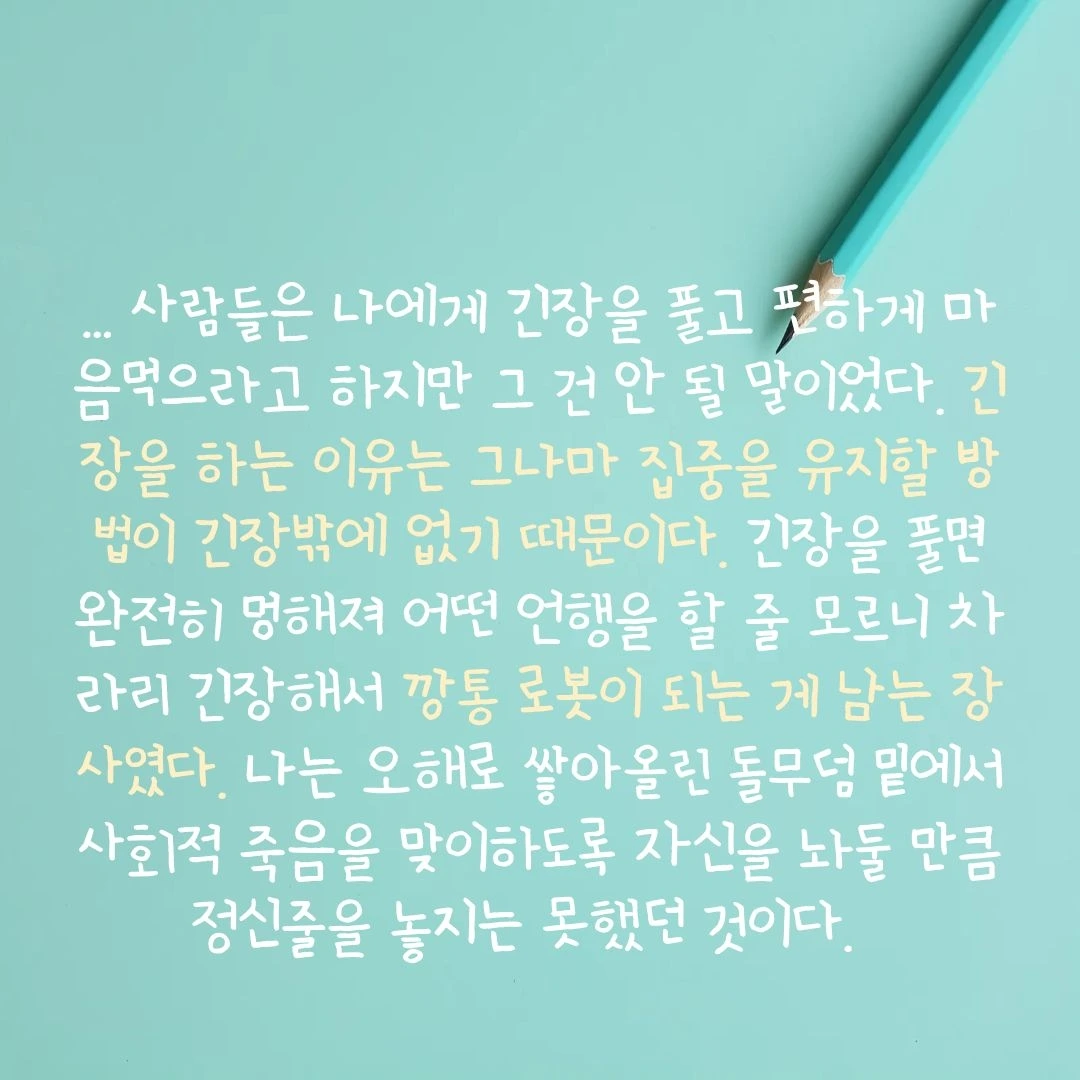 ... 사람들은 나에게 긴장을 풀고 편하게 마
음먹으라고 하지만 그 건 안 될 말이었다. 긴
장을 하는 이유는 그나마 집중을 유지할 방
법이 긴장밖에 없기 때문이다. 긴장을 풀면
완전히 멍해져 어떤 언행을 할 줄 모르니 차
라리 긴장해서 깡통 로봇이 되는 게 남는 장
사였다. 나는 오해로 쌓아올린 돌무덤 밑에서
사회적 죽음을 맞이하도록 자신을 놔둘 만큼
정신줄을 놓지는 못했던 것이다.